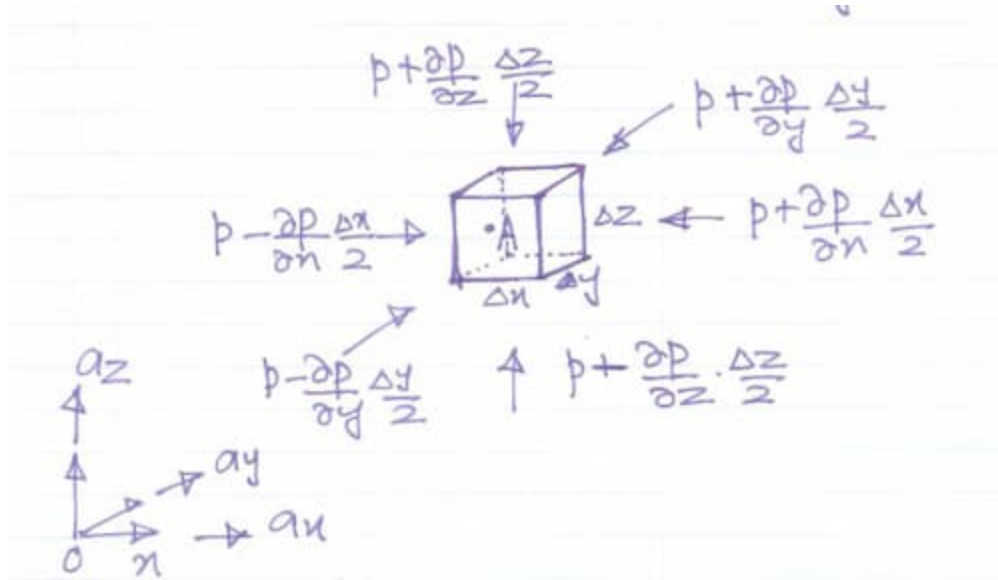 p + ∂p/∂z Δz/2
p + ∂p/∂y Δy/2
p − ∂p/∂x Δx/2
A
Δz
p + ∂p/∂x Δx/2
Δx
Δy
p − ∂p/∂y Δy/2
p + ∂p/∂z . Δz/2
az
ay
ax
0
x